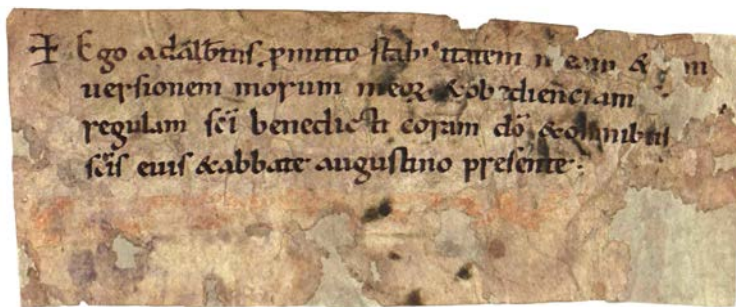 ☩ Ego adalb̅tus p̱mitto stabilitatem meam &
uersionem morum meoꝝ & obedienciam
regulam sc̅i benedicti coram dō & omnibus
sc̅is eius & abbate augustino presente: